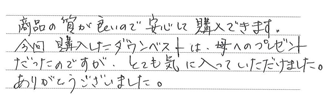 商品の質が良いので安心して購入できます。
今回購入したダウンベストは、母へのプレゼント
だったのですが、とても気に入っていただけました。
ありがとうございました。